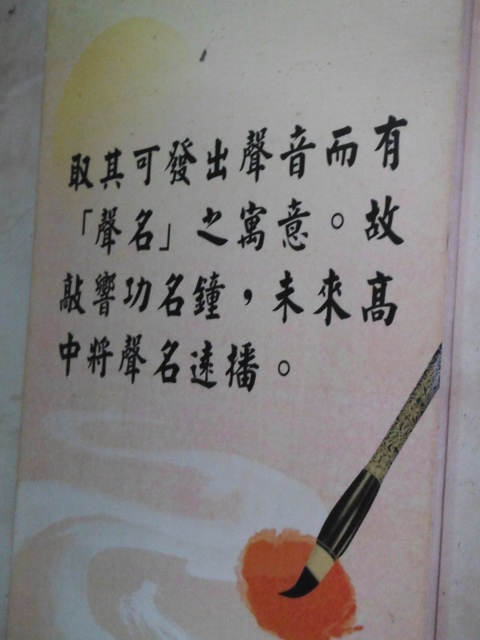 取其可發出聲音而有
「聲名」之寓意。故
敲響功名鐘，未來高
中將聲名遠播。